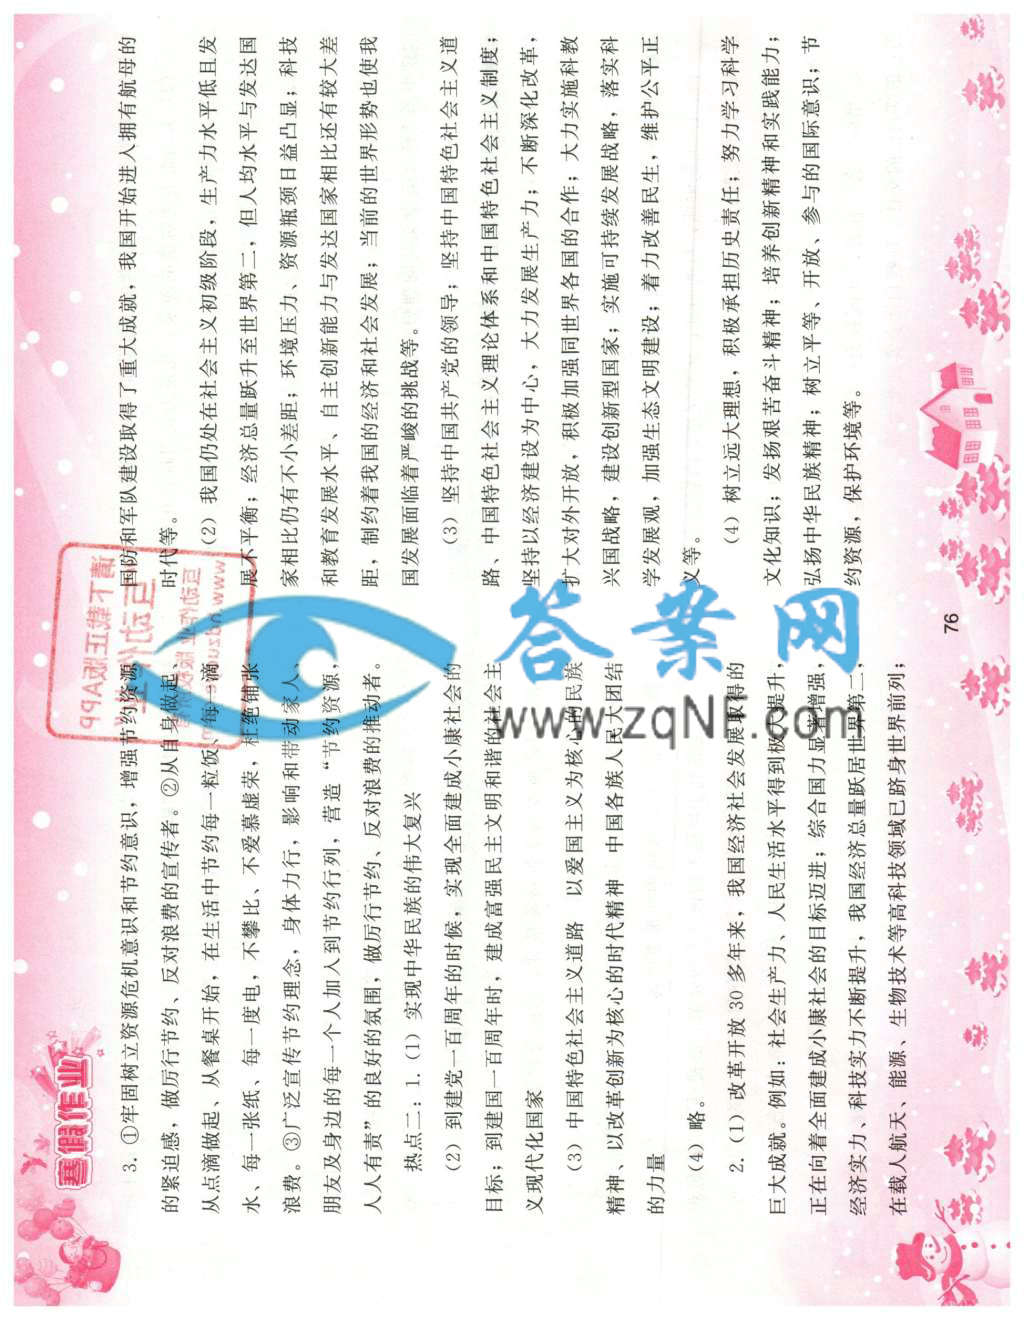 寒假作业
3. ①牢固树立资源危机意识和节约意识，增强节约资源
的紧迫感，做厉行节约、反对浪费的宣传者。②从自身做起、
从点滴做起、从餐桌开始，在生活中节约每一粒饭、每一滴
水、每一张纸、每一度电，不攀比、不爱慕虚荣，杜绝铺张
浪费。③广泛宣传节约理念，身体力行，影响和带动家人、
朋友及身边的每一个人加入到节约行列，营造“节约资源，
人人有责”的良好的氛围，做厉行节约、反对浪费的推动者。
热点二：1.（1）实现中华民族的伟大复兴
（2）到建党一百周年的时候，实现全面建成小康社会的
目标；到建国一百周年时，建成富强民主文明和谐的社会主
义现代化国家
（3）中国特色社会主义道路 以爱国主义为核心的民族
精神、以改革创新为核心的时代精神 中国各族人民大团结
的力量
（4）略。
2.（1）改革开放 30 多年来，我国经济社会发展取得的
巨大成就。例如：社会生产力、人民生活水平得到极大提升，
正在向着全面建成小康社会的目标迈进；综合国力显著增强，
经济实力、科技实力不断提升，我国经济总量跃居世界第二，
在载人航天、能源、生物技术等高科技领域已跻身世界前列；
国防和军队建设取得了重大成就，我国开始进入拥有航母的
时代等。
（2）我国仍处在社会主义初级阶段，生产力水平低且发
展不平衡；经济总量跃升至世界第二，但人均水平与发达国
家相比仍有不小差距；环境压力、资源瓶颈日益凸显；科技
和教育发展水平、自主创新能力与发达国家相比还有较大差
距，制约着我国的经济和社会发展；当前的世界形势也使我
国发展面临着严峻的挑战等。
（3）坚持中国共产党的领导；坚持中国特色社会主义道
路、中国特色社会主义理论体系和中国特色社会主义制度；
坚持以经济建设为中心，大力发展生产力；不断深化改革，
扩大对外开放，积极加强同世界各国的合作；大力实施科教
兴国战略，建设创新型国家；实施可持续发展战略，落实科
学发展观，加强生态文明建设；着力改善民生，维护公平正
义等。
（4）树立远大理想，积极承担历史责任；努力学习科学
文化知识；发扬艰苦奋斗精神；培养创新精神和实践能力；
弘扬中华民族精神；树立平等、开放、参与的国际意识；节
约资源，保护环境等。
76
答案网
www.zqNF.com